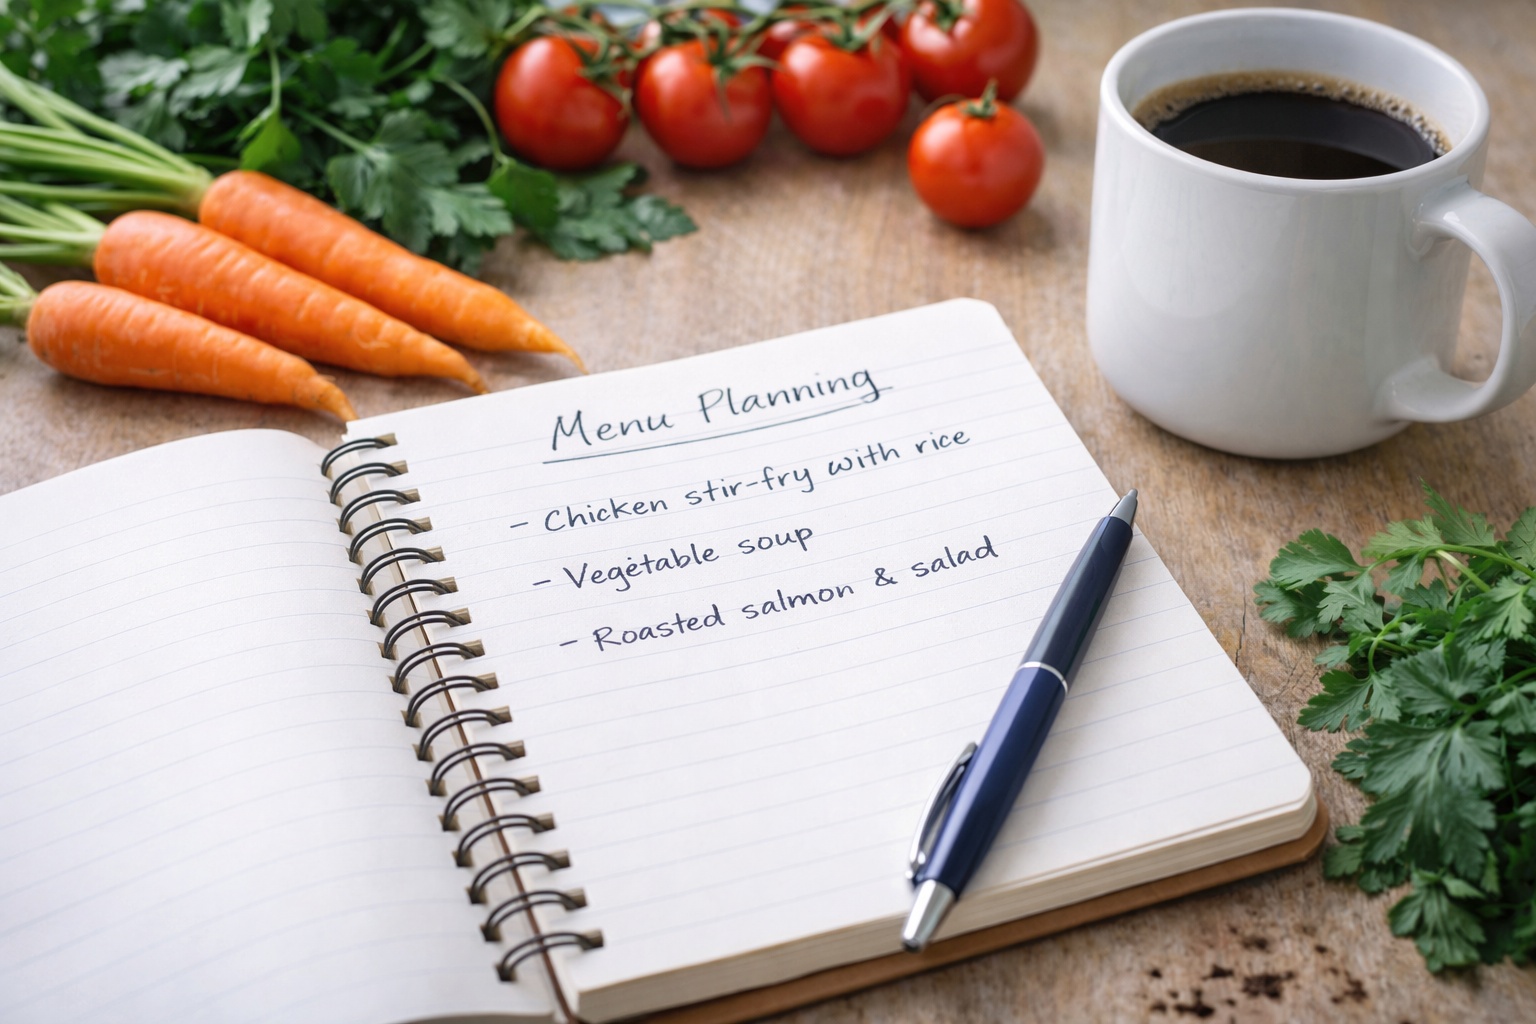 Menu Planning
- Chicken stir-fry with rice
- Vegetable soup
- Roasted salmon & salad